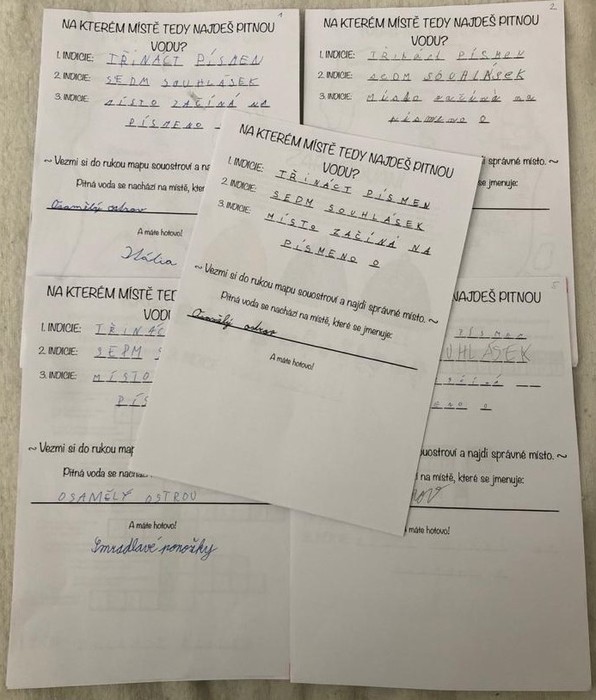 1
NA KTERÉM MÍSTĚ TEDY NAJDEŠ PITNOU
VODU?
1. INDICIE: TŘINÁCT PÍSMEN
2. INDICIE: SEDM SOUHLÁSEK
3. INDICIE: MÍSTO ZAČÍNÁ NA
PÍSMENO
~ Vezmi si do rukou mapu souostroví a na
Pitná voda se nachází na místě, kter
Osamělý ostrov
A máte hotovo!
Itálie
2
NA KTERÉM MÍSTĚ TEDY NAJDEŠ PITNOU
VODU?
1. INDICIE: TŘINÁCT PÍSMEN
2. INDICIE: SEDM SOUHLÁSEK
3. INDICIE: MÍSTO ZAČÍNÁ NA
PÍSMENO O
di správné místo. ~
se jmenuje:
NA KTERÉM MÍSTĚ TEDY NAJDEŠ PITNOU
VODU?
1. INDICIE: TŘINÁCT PÍSMEN
2. INDICIE SEDM SOUHLÁSEK
3. INDICIE: MÍSTO ZAČÍNÁ NA
PÍSMENO O
~ Vezmi si do rukou mapu souostroví a najdi správné místo. ~
Pitná voda se nachází na místě, které se jmenuje:
Osamělý ostrov
A máte hotovo!
NA KTERÉM MÍSTĚ TE
VODU
1. INDICIE: TŘINÁC
2. INDICIE: SEDM S
3. INDICIE: MÍSTO
PÍS
~ Vezmi si do rukou map
Pitná voda se nachá
OSAMĚLÝ OSTROV
A máte hotovo!
Smradlavé ponožky
5
NAJDEŠ PITNOU
UHLÁSEK
ouostroví a najdi správné místo. ~
í na místě, které se jmenuje:
ROV
máte hotovo!